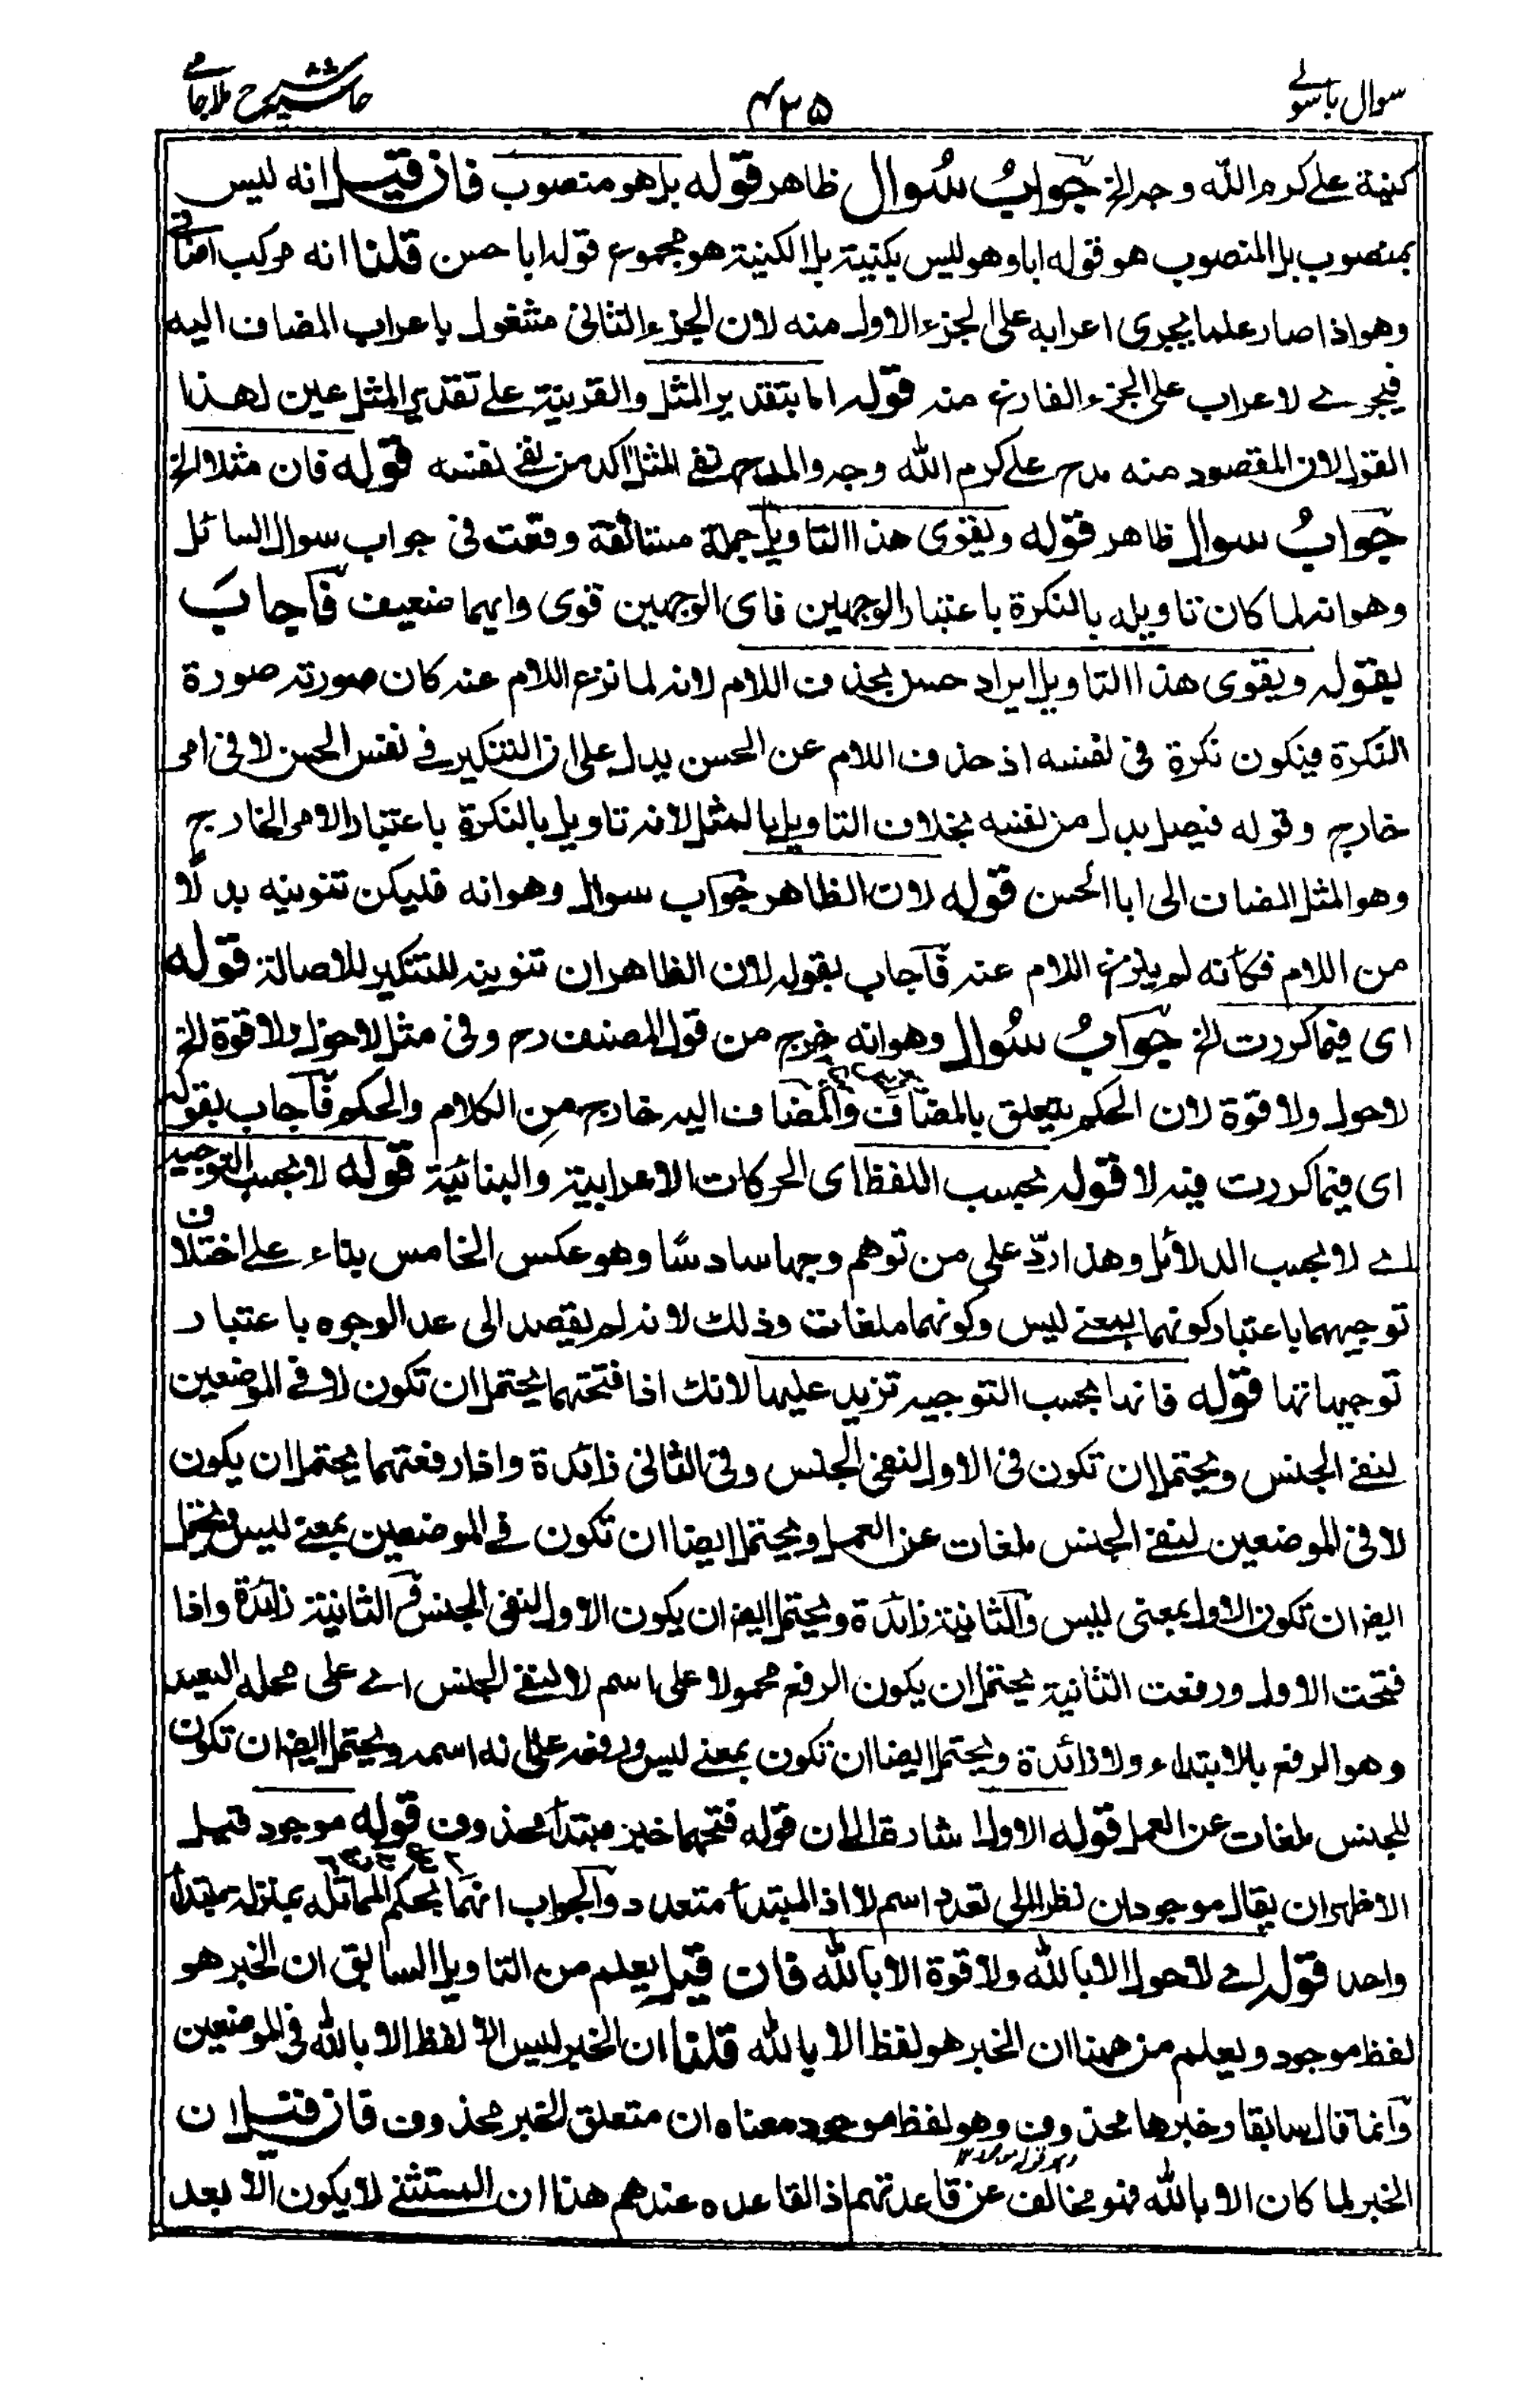 سوال باسولے
۴۳۵
حاشیہ شرح ملا جامے
کنیة علے کرم الله وجہ الخ جواب سُوال ظاهر قوله بل هو منصوب فان قیل انه لیس
بمنصوب بل المنصوب هو قوله ابا وهو لیس بکنیة بل الکنیة هو مجموع قوله ابا حسن قلنا انه مرکب اضافے
وهو اذا صار علما یجری اعرابه علی الجزء الاول منه لان الجزء الثانی مشغول باعراب المضاف الیه
فیجرے لاعراب علی الجزء الفارغ منه قوله اما بتقدیر المثل والقرینة علے تقدیر المثل عین لهذا
القول لان المقصود منه مدح علے کرم الله وجه والمدح بنفے المثل اکد من نفے نفسه قوله فان مثلا الخ
جوابُ سوال ظاهر قوله ویقوی هذا التاویل جملة مستانفة وقعت فی جواب سوال السائل
وهو انه لما کان تاویله بالنکرة باعتبار الوجهین فای الوجهین قوی وایهما ضعیف فاجابَ
بقوله ویقوی هذا التاویل ایراد حسن بحذف اللام لانه لما نزع اللام عنه کان صورته صورة
النکرة فیکون نکرة فی نفسه اذ حذف اللام عن الحسن یدل علی ان التنکیر فے نفس الحسن لا فی امر
خارج وقوله فیصل بدل من نفسه بخلاف التاویل بالمثل لانه تاویل بالنکرة باعتبار الامر الخارج
وهو المثل المضاف الی ابا الحسن قوله لان الظاهر جواب سوال وهو انه فلیکن تنوینه بدلًا
من اللام فکأنه لم ینزع اللام عنه فاجاب بقوله لان الظاهر ان تنوینه للتنکیر للاصالة قوله
ای فیما کررت الخ جوابُ سُوال وهو انه خرج من قول المصنف رح وفی مثل لا حول ولا قوة الخ
لا حول ولا قوة لان الحکم یتعلق بالمضاف والمضاف الیه خارج من الکلام والحکم فاجاب بقوله
ای فیما کررت فیه لا قوله بحسب اللفظ ای الحرکات الاعرابیة والبنائیة قوله لا بحسب التوجیه
اے لا بحسب الدلائل وهذا ردّ علی من توهم وجها سادسًا وهو عکس الخامس بناء علے اختلاف
توجیهما باعتبار کونهما بمعنے لیس وکونهما ملغات وذلک لانه لم یقصد الی عد الوجوه باعتبار
توجیهاتها قوله فانها بحسب التوجیه تزید علیها لانک اذا فتحتهما یحتمل ان تکون لا فے الموضعین
لنفے الجنس ویحتمل ان تکون فی الاول لنفی الجنس وفی الثانی زائدة واذا رفعتهما یحتمل ان یکون
لا فی الموضعین لنفے الجنس ملغات عن العمل ویحتمل ایضا ان تکون فے الموضعین بمعنے لیس ویحتمل
ایضا ان تکون الاول بمعنی لیس والثانیة زائدة ویحتمل ایضا ان یکون الاول لنفی الجنس والثانیة زائدة واذا
فتحت الاول ورفعت الثانیة یحتمل ان یکون الرفع محمولا علی اسم لا لنفے الجنس اے علی محله البعید
وهو الرفع بالابتداء ولا زائدة ویحتمل ایضا ان تکون بمعنے لیس ورفعه علی انه اسمه ویحتمل ایضا ان تکون
للجنس ملغات عن العمل قوله الاول اشارة الی ان قوله فتحهما خبر مبتدأ محذوف قوله موجود قیل
الاظهر ان یقال موجودان نظرا الی تعدد اسم لا اذ المبتدأ متعدد والجواب انهما بحکم المماثلة بمنزلة مبتدأ
واحد قوله اے لا حول الا بالله ولا قوة الا بالله فان قیل یعلم من التاویل السابق ان الخبر هو
لفظ موجود ویعلم من ههنا ان الخبر هو لفظ الا بالله قلنا ان الخبر لیس الا لفظ الا بالله فی الموضعین
وانما قال سابقا وخبرها محذوف وهو لفظ موجود معناه ان متعلق الخبر محذوف فان قیل ان
الخبر لما کان الا بالله فهو مخالف عن قاعدتهم اذ القاعده عندهم هذا ان المستثنے لا یکون الا بعد